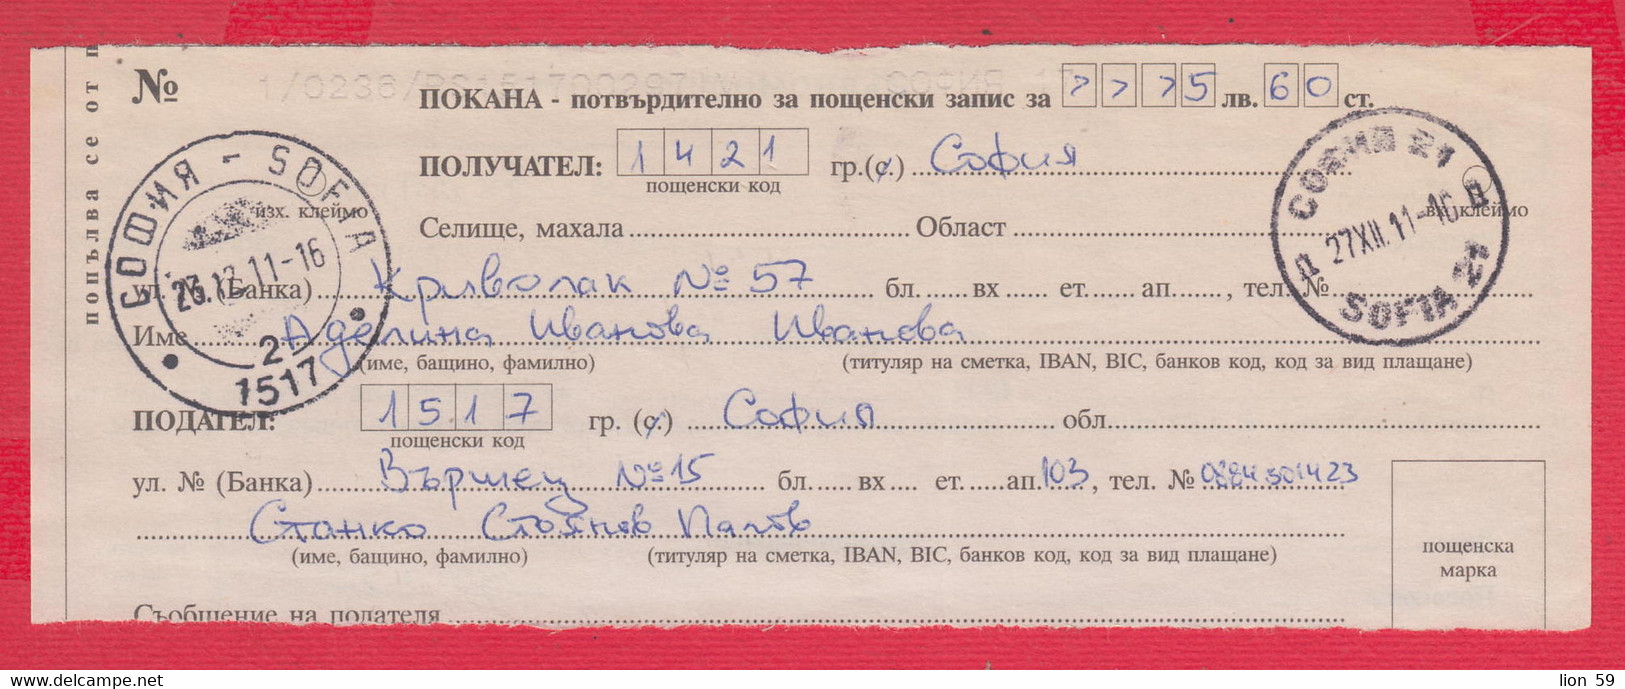 1/0236/PS151700297 СОФИЯ 17
№ ПОКАНА - потвърдително за пощенски запис за > > > 5 лв. 60 ст.
попълва се от п
ПОЛУЧАТЕЛ: 1 4 2 1 гр.(с) София
пощенски код
изх. клеймо
вх. клеймо
Селище, махала Област
ул. № (Банка) Криволак № 57 бл. вх ет. ап., тел. №
Име Аделина Иванова Иванова
(име, бащино, фамилно) (титуляр на сметка, IBAN, BIC, банков код, код за вид плащане)
ПОДАТЕЛ: 1 5 1 7 гр. (с) София обл.
пощенски код
ул. № (Банка) Вършец № 15 бл. вх ет. ап 103, тел. № 0884301423
Станко Стоянов
(име, бащино, фамилно) (титуляр на сметка, IBAN, BIC, банков код, код за вид плащане)
пощенска
марка
Съобщение на подателя
СОФИЯ - SOFIA
12.11-16
2
1517
СОФИЯ 21
27XII.11-16
SOFIA 21
lion 59